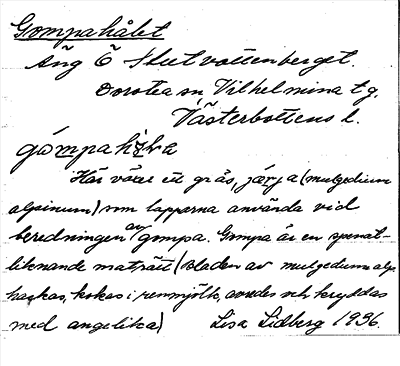 Gompahålet
Äng Ö Slutvattenberget.
Dorotea sn Vilhelmina tg.
Västerbottens l.
gómpahɩ̀ƫa
Här växer ett gräs, jarja (mulgedium
alpinum) som lapparna använda vid
beredningen av gompa. Gompa är en spenat-
liknande maträtt (Bladen av mulgedium alp.
hackas, kokas i renmjölk, avredes och kryddas
med angelika) Lisa Lidberg 1936.